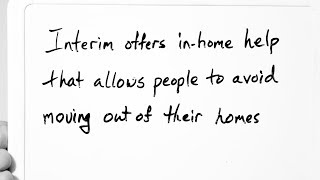 Interim offers in-home help
that allows people to avoid
moving out of their homes